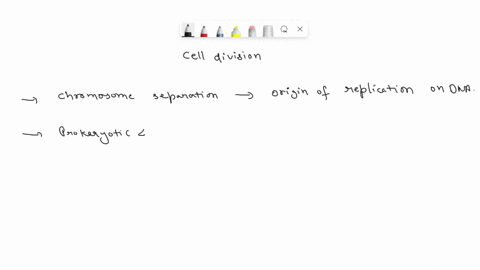 Cell division
→ chromosome separation → origin of replication on DNA.
→ Prokeryotic